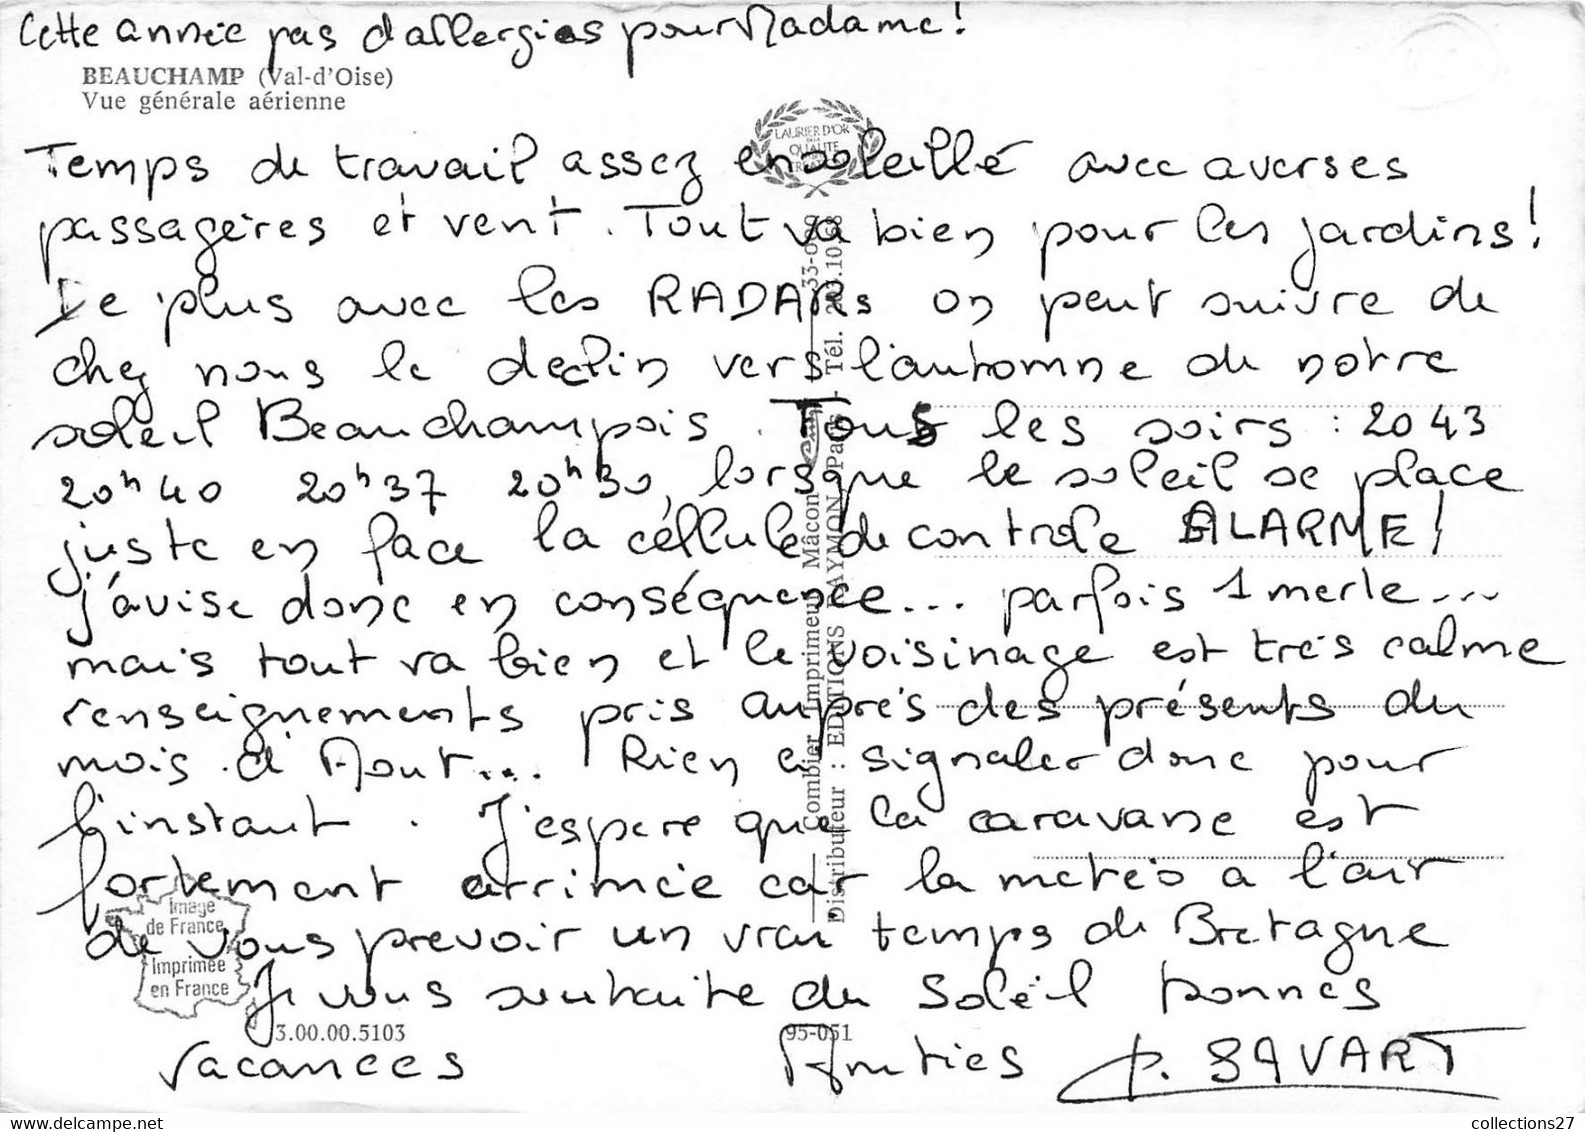 Cette année pas d'allergies pour Madame!
BEAUCHAMP (Val-d'Oise)
Vue générale aérienne
LAURIER D'OR
DE LA
QUALITÉ
Temps de travail assez ensoleillé avec averses
passagères et vent. Tout va bien pour les jardins!
De plus avec les RADARs on peut suivre de
chez nous le declin vers l'automne de notre
soleil Beauchampois. Tous les soirs : 20 43
20h40 20h37 20h30, lorsque le soleil se place
juste en face la céllule de controle ALARME!
j'avise donc en conséquence... parfois 1 merle...
mais tout va bien et le voisinage est très calme
renseignements pris auprès des présents du
mois d'Aout... Rien à signaler donc pour
l'instant. J'espere que la caravane est
fortement arrimée car la météo a l'air
de vous prevoir un vrai temps de Bretagne
Je vous souhaite du Soleil bonnes
vacances Amitiés P. SAVART
Image
de France
Imprimée
en France
3.00.00.5103
95-051
Combier Imprimeur Mâcon
Distributeur : EDITIONS RAYMON, Paris - Tél. 203.10.68
collections27